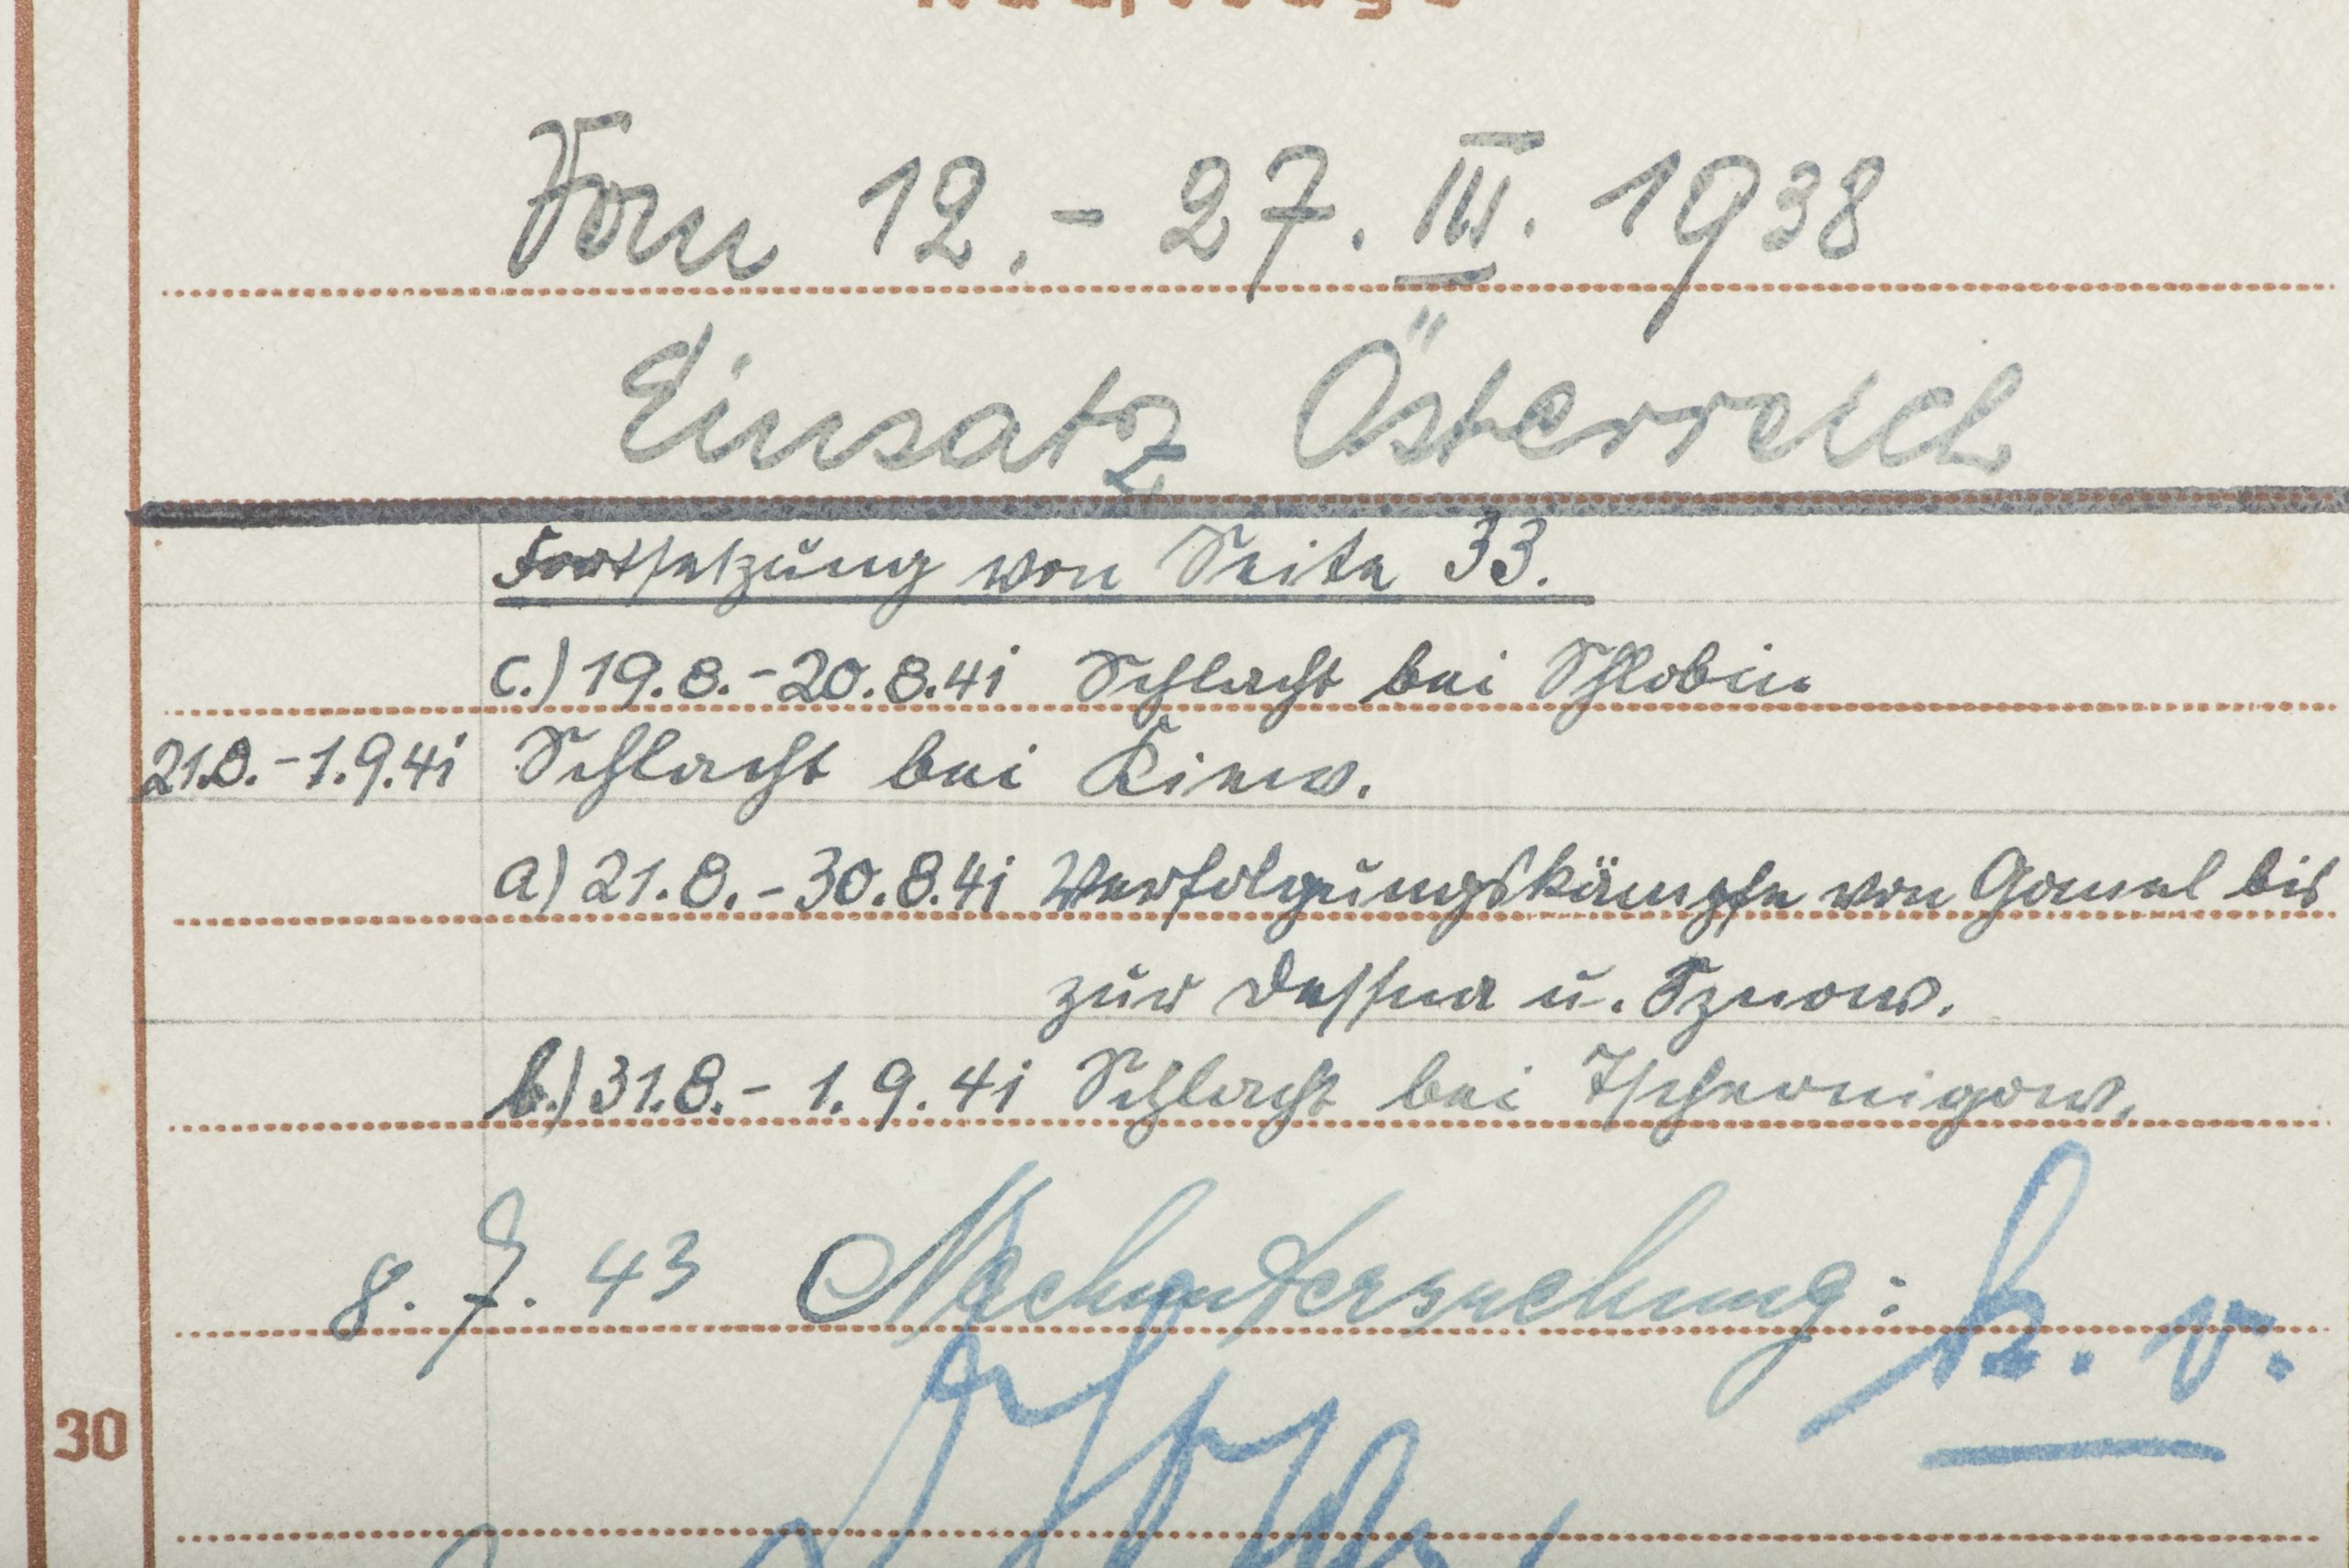 Vom 12.- 27. III. 1938
Einsatz Österreich
Fortsetzung von Seite 33.
c.) 19.8.-20.8.41 Schlacht bei Shlobin
21.8.-1.9.41 Schlacht bei Kiew.
a) 21.8.-30.8.41 Verfolgungskämpfe von Gomel bis
zur Dessna u. Sznow.
b.) 31.8.- 1.9.41 Schlacht bei Tschernigow.
8. 7. 43 Nachuntersuchung: k. v.
30